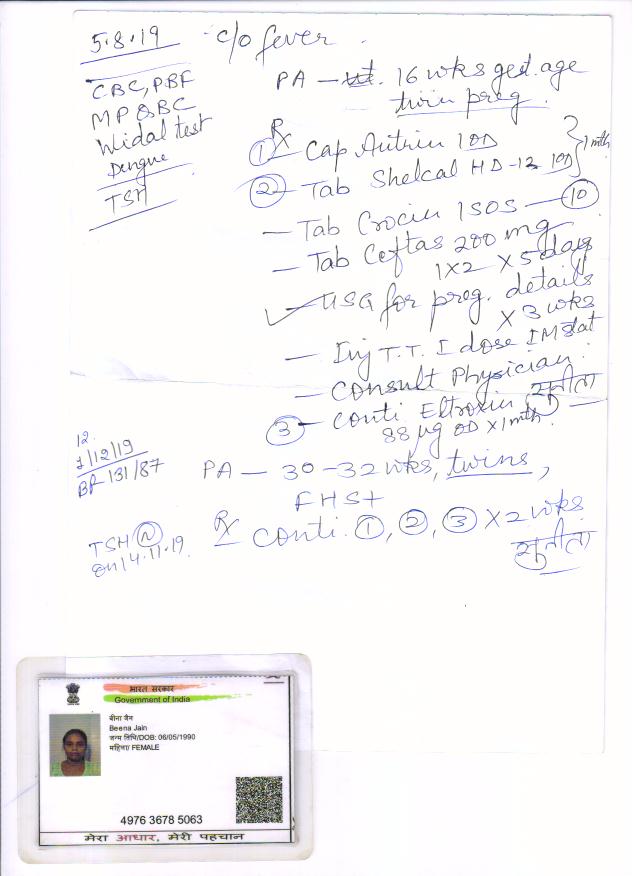 5.8.19 c/o fever.
CBC, PBF
MP QBC
Widal test
Dengue
TSH
PA — 16 wks gest. age
twin preg.
Rx
① Cap Autrin 1 OD
② Tab Shelcal HD-12 1OD } 1 mth
— Tab Crocin 1 SOS — ⑩
— Tab Ceftas 200 mg
1x2 x 5 days
✓ — USG for preg. details
x 3 wks
— Inj T.T. I dose IM stat
— Consult Physician.
③ — Conti Eltroxin सुनीता
88 µg OD x 1 mth.
12.
1/12/19
BP 131/87
PA — 30-32 wks, twins,
FHS+
TSH Ⓝ
on 14.11.19.
Rx Conti. ①, ②, ③ x 2 wks
सुनीता
भारत सरकार
Government of India
बीना जैन
Beena Jain
जन्म तिथि/DOB: 06/05/1990
महिला/ FEMALE
4976 3678 5063
मेरा आधार, मेरी पहचान